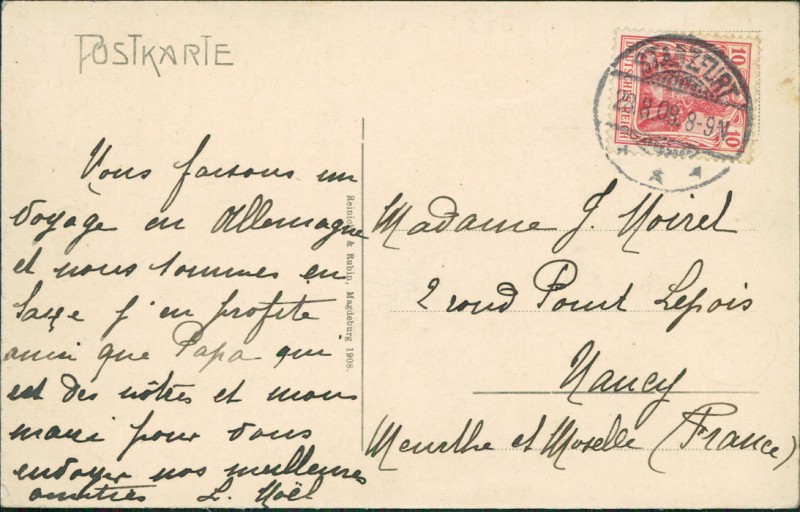 POSTKARTE
STASZFURT
8-9N
10
DEUTSCHES REICH
10
Vous faisons un
voyage en Allemagne
et nous sommes en
Saxe j'en profite
ainsi que Papa qui
est des nôtres et mon
mari pour vous
envoyer nos meilleures
amitiés L. Noël
Reinicke & Rubin, Magdeburg 1908.
Madame J. Noirel
2 rond Point Lepois
Nancy
Meurthe et Moselle (France)